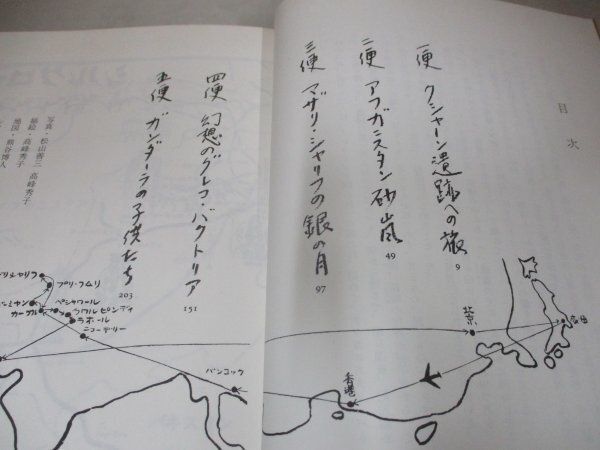 目次
一便 クシャーン遺跡への旅
9
二便 アフガニスタン砂嵐
49
三便 マザリ・シャリフの銀の月
97
四便 幻想のグレコ・バクトリア
151
五便 ガンダーラの子供たち
203
写真・松山善三 高峰秀子
挿絵・高峰秀子
地図・熊谷博人
プリ・フムリ
カーブル
ペシャワール
ラワルピンディ
ラホール
ニューデリー
バンコック
香港
北京
羽田